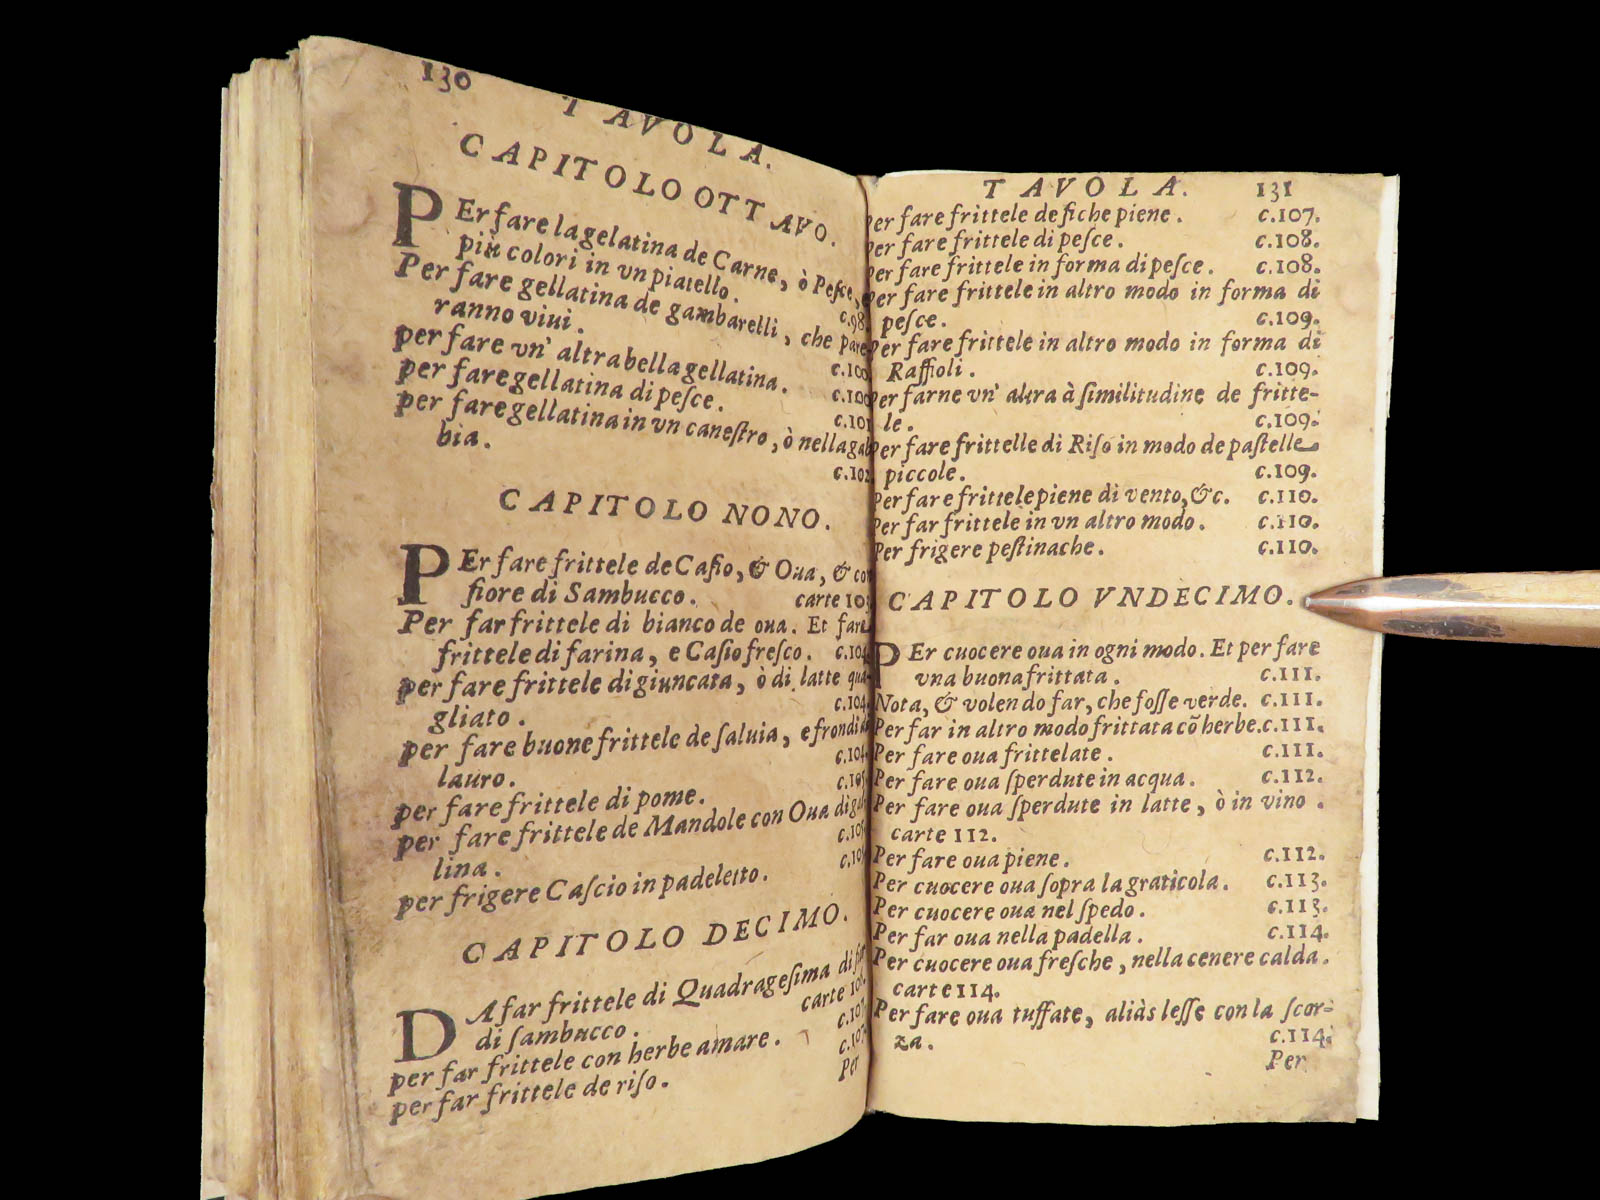 130
TAVOLA.
CAPITOLO OTTAVO.
PEr fare la gelatina de Carne, ò Peſce,
più colori in vn piatello.
c.98.
Per fare gellatina de gambarelli, che pare
ranno viui.
c.100
per fare vn' altra bella gellatina.
c.100
per fare gellatina di peſce.
c.101
per fare gellatina in vn caneſtro, ò nella gab
bia.
c.102
CAPITOLO NONO.
PEr fare frittele de Caſio, & Oua, & con
fiore di Sambucco. carte 103
Per far frittele di bianco de oua. Et fare
frittele di farina, e Caſio freſco. c.104
per fare frittele di giuncata, ò di latte qua
gliato. c.104.
per fare buone frittele de ſaluia, e frondi de
lauro. c.104.
per fare frittele di pome. c.105
per fare frittele de Mandole con Oua di gal
lina. c.105
per frigere Caſcio in padeletto. c.105
CAPITOLO DECIMO.
DA far frittele di Quadrageſima di fior
di ſambucco. carte 106.
per far frittele con herbe amare. c.107.
per far frittele de riſo. c.107.
Per
TAVOLA. 131
Per fare frittele de fiche piene. c.107.
Per fare frittele di peſce. c.108.
Per fare frittele in forma di peſce. c.108.
Per fare frittele in altro modo in forma di
peſce. c.109.
Per fare frittele in altro modo in forma di
Raffioli. c.109.
Per farne vn' altra à ſimilitudine de fritte-
le. c.109.
Per fare frittelle di Riſo in modo de paſtelle
piccole. c.109.
Per fare frittele piene di vento, &c. c.110.
Per far frittele in vn altro modo. c.110.
Per frigere peſtinache. c.110.
CAPITOLO VNDECIMO.
PEr cuocere oua in ogni modo. Et per fare
vna buona frittata. c.111.
Nota, & volendo far, che foſſe verde. c.111.
Per far in altro modo frittata cõ herbe. c.111.
Per fare oua frittelate. c.111.
Per fare oua ſperdute in acqua. c.112.
Per fare oua ſperdute in latte, ò in vino.
carte 112.
Per fare oua piene. c.112.
Per cuocere oua ſopra la graticola. c.113.
Per cuocere oua nel ſpedo. c.113.
Per far oua nella padella. c.114.
Per cuocere oua freſche, nella cenere calda.
carte 114.
Per fare oua tuffate, aliàs leſſe con la ſcor-
za. c.114.
Per